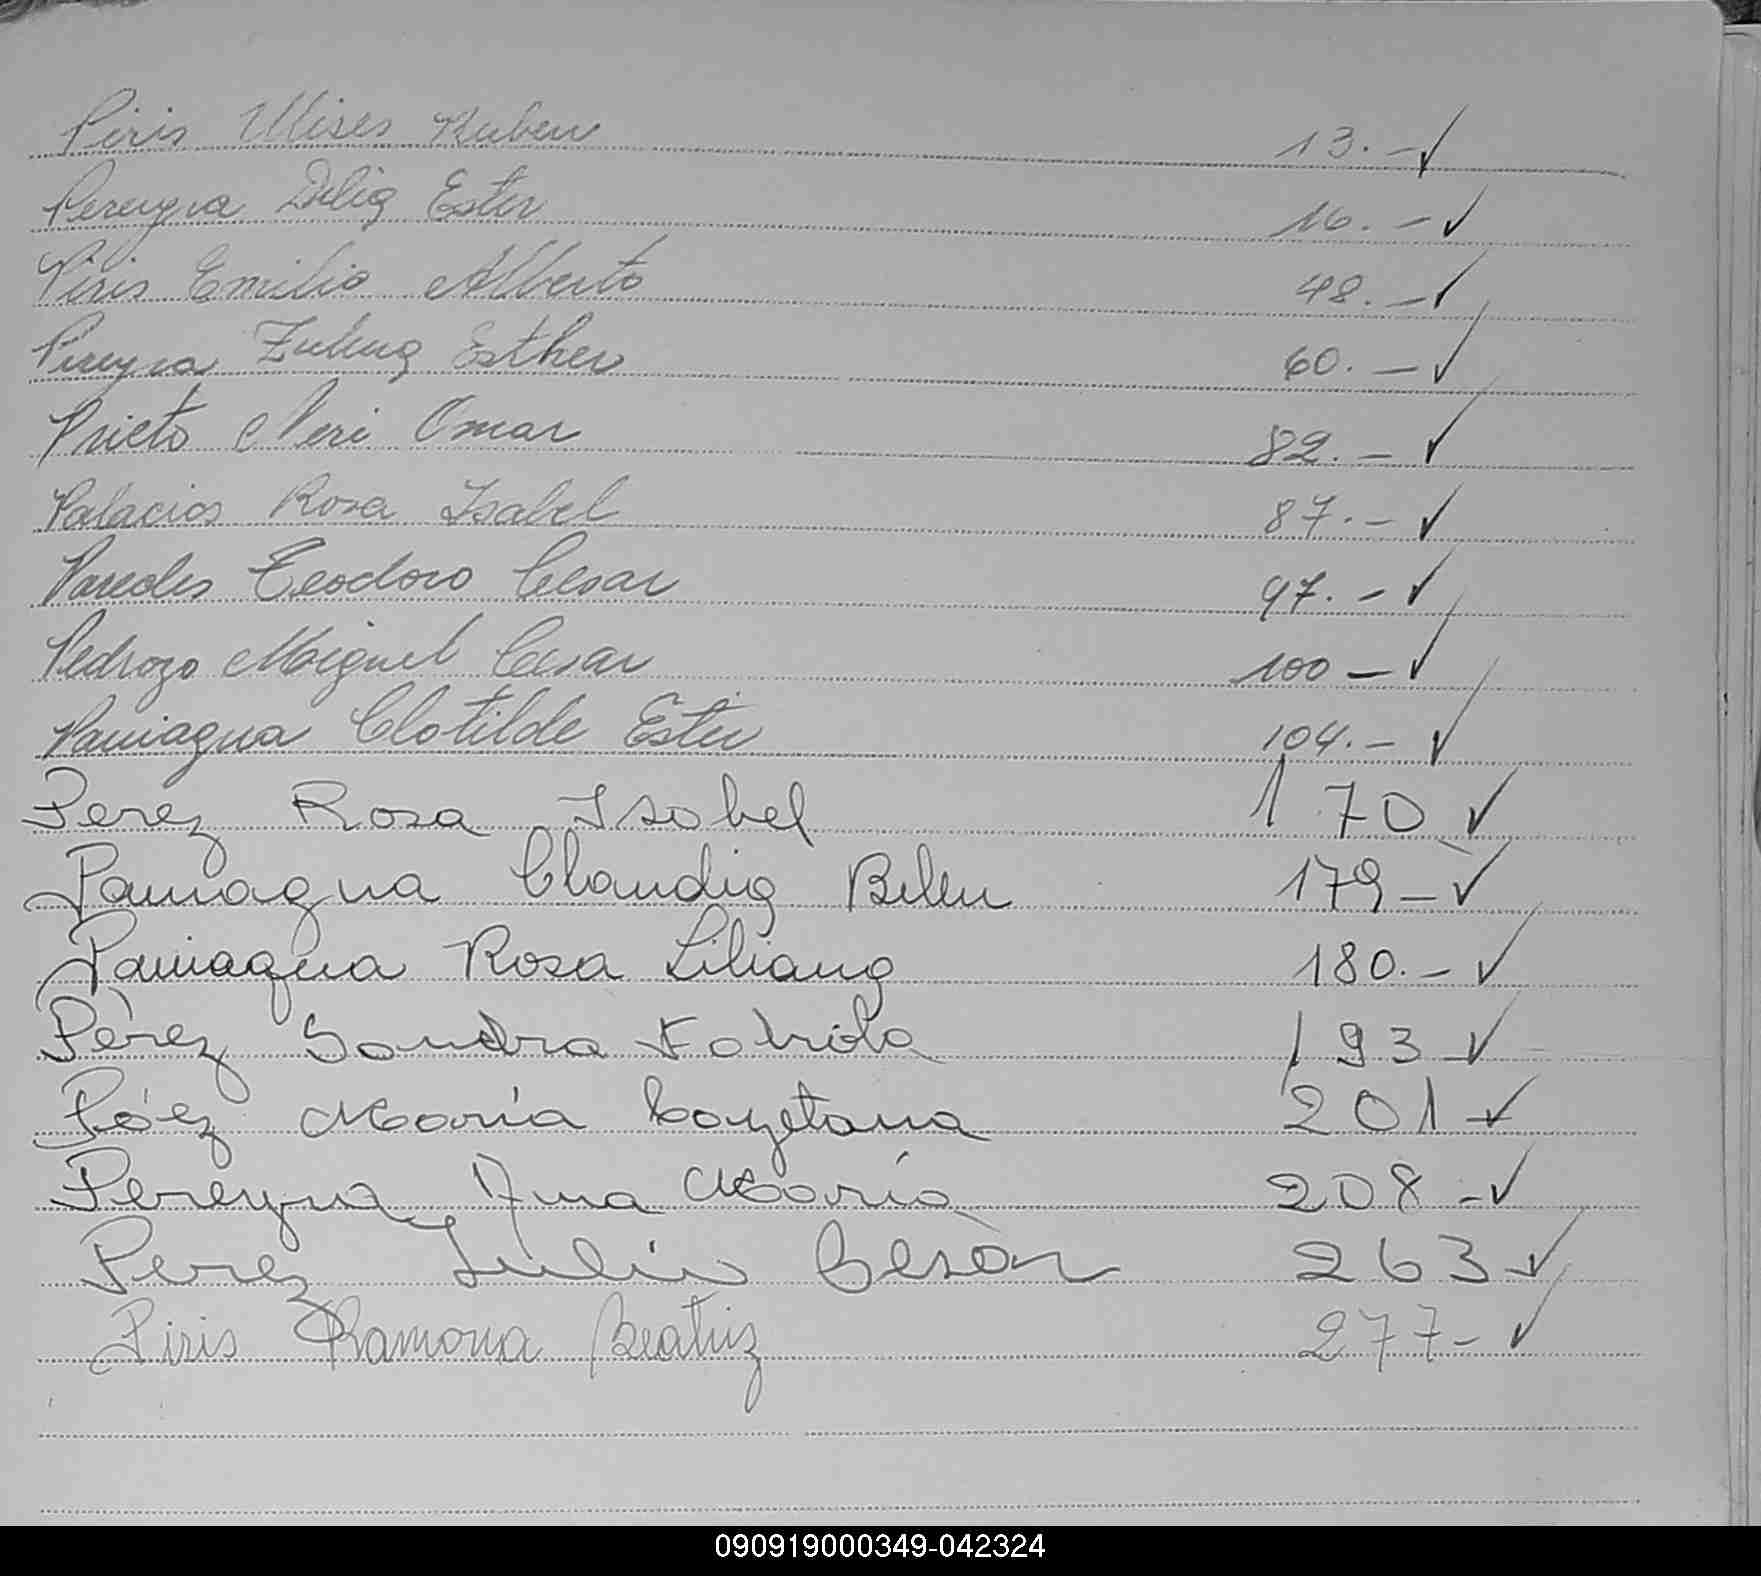 Piris Ulises Ruben 13.-✓
Pereyra Delia Ester 16.-✓
Piris Emilio Alberto 48.-✓
Pereyra Zulma Esther 60.-✓
Prieto Neri Omar 82.-✓
Palacios Rosa Isabel 87.-✓
Paredes Teodoro Cesar 97.-✓
Pedrozo Miguel Cesar 100-✓
Paniagua Clotilde Ester 104.-✓
Perez Rosa Isabel 170✓
Paniagua Claudia Belen 179-✓
Paniagua Rosa Liliana 180.-✓
Pérez Sandra Fabiola 193-✓
Páez María Cayetana 201-✓
Pereyra, Ana María 208-✓
Perez Julio Cesar 263-✓
Piris Ramona Beatriz 277-✓
090919000349-042324